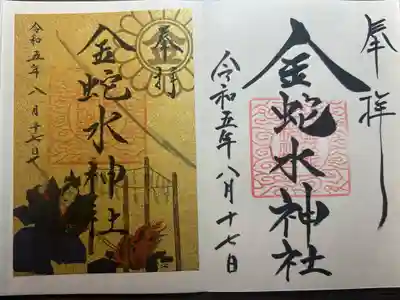 奉拝
金蛇水神社
令和五年八月十七日
奉拝
金蛇水神社
令和五年八月十七日